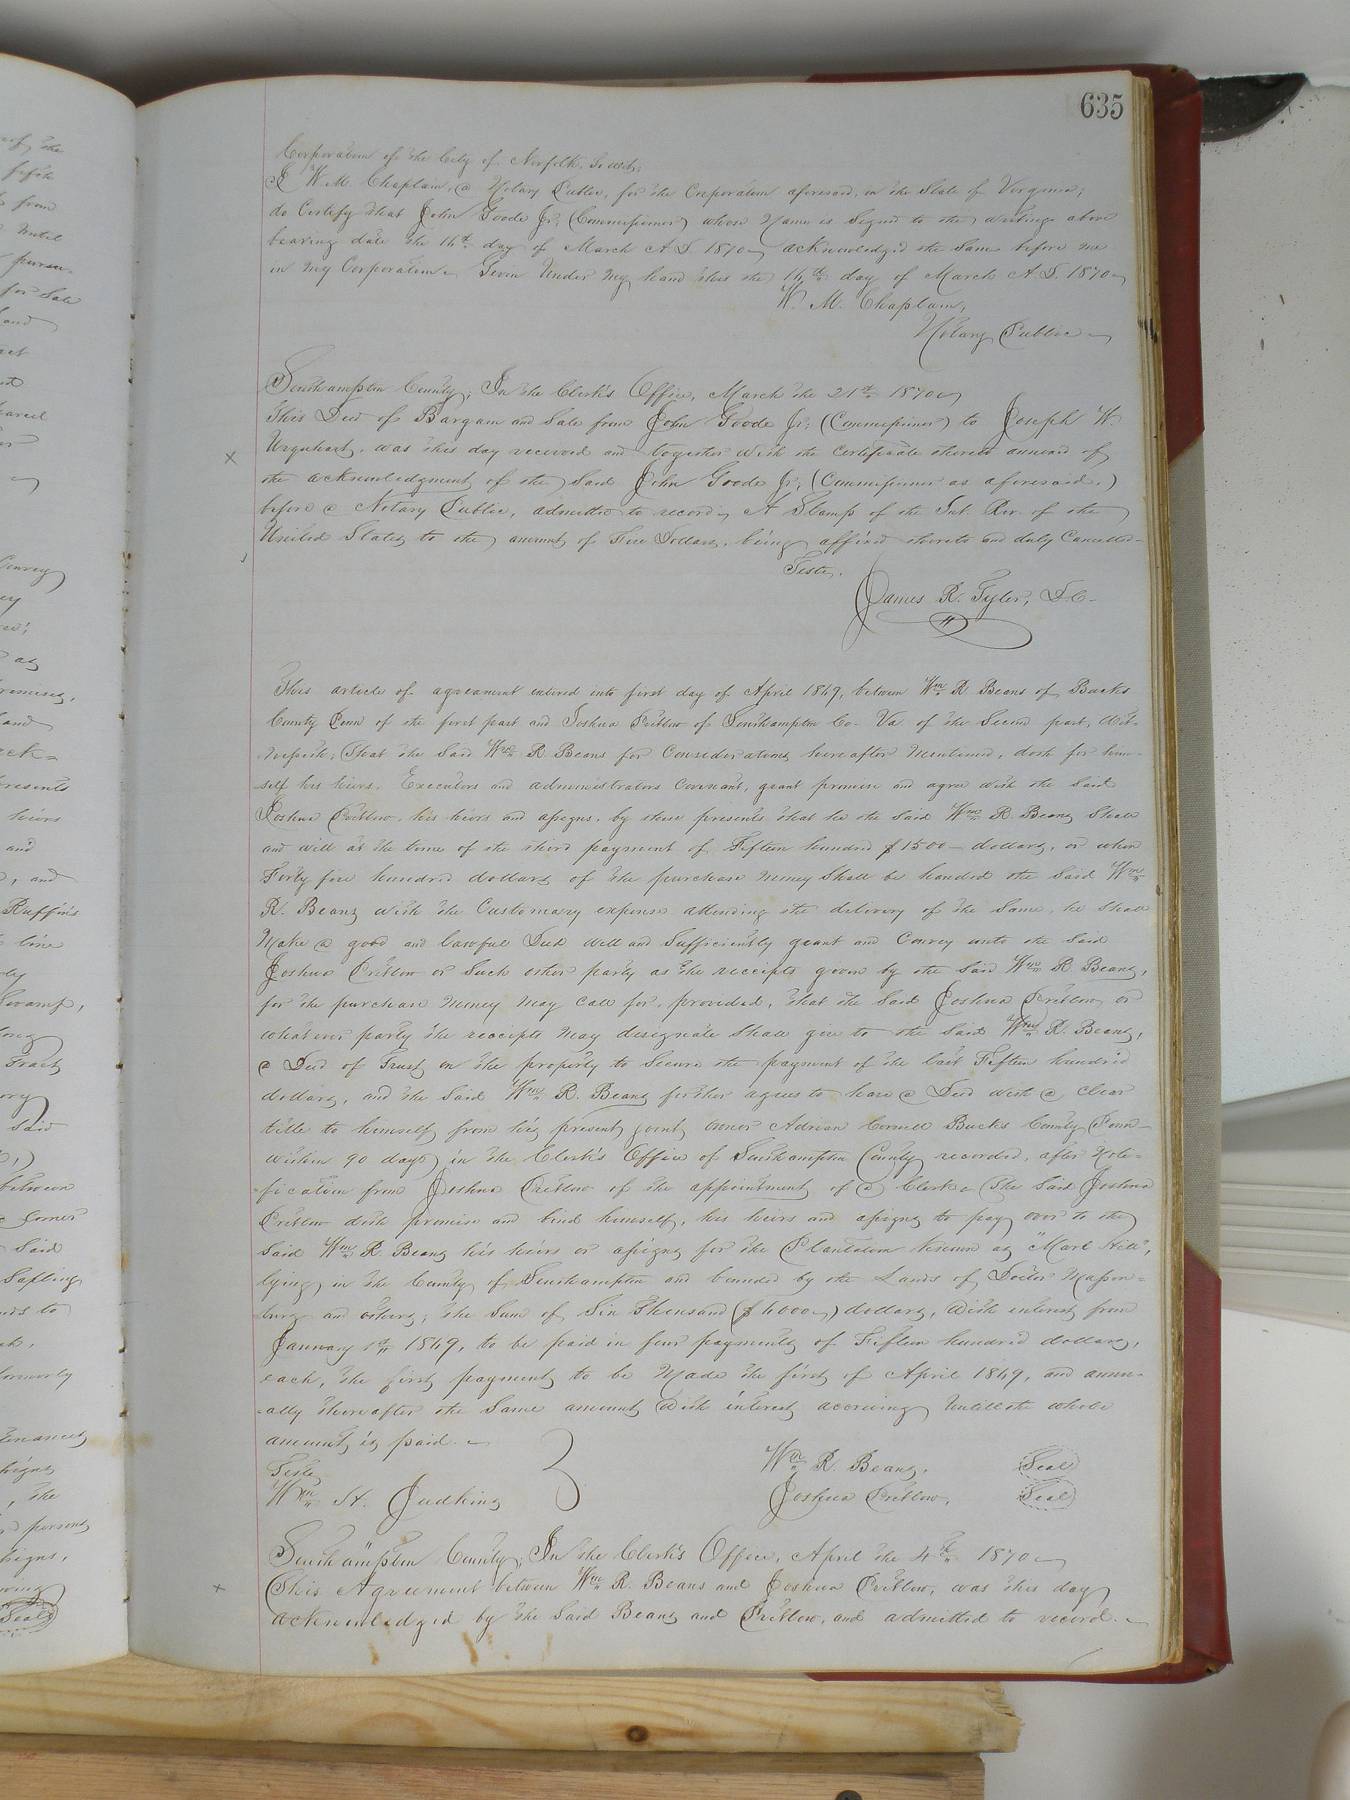 635
Corporation of the City of Norfolk, To wit;
I W. M. Chaplain, a Notary Public, for the Corporation aforesaid, in the State of Virginia,
do Certify that John Goode Jr, (Commissioner) whose Name is Signed to the writing above
bearing date the day of March A. D. 1870 acknowledged the Same before me
in my Corporation. Given Under My hand this the day of March A. D. 1870
W. M. Chaplain,
Notary Public
Southampton County; In the Clerk's Office, March the 21st 1870
This Deed of Bargain and Sale from John Goode Jr, (Commissioner) to Joseph W.
Urquhart, was this day received and together with the Certificate thereto annexed of
the acknowledgment of the Said John Goode Jr, (Commissioner as aforesaid,)
before a Notary Public, admitted to record. A Stamp of the Int. Rev. of the
United States to the amount of Five Dollars, being affixed thereto and duly Cancelled
Teste,
James R. Tyler, D.C.
This article of agreement entered into first day of April 1849, between Wm R. Beans of Bucks
County Penn of the first part and Joshua Pretlow of Southampton Co. Va of the Second part, Wit-
nesseth; That the Said Wm R. Beans for Considerations hereafter Mentioned, doth for him-
self his heirs, Executors and administrators Covenant, grant promise and agree with the Said
Joshua Pretlow, his heirs and assigns, by these presents that he the Said Wm R. Beans Shall
and will at the time of the third payment of Fifteen hundred $1500 dollars, or when
Forty five hundred dollars of the purchase Money Shall be handed the Said Wm
R. Beans with the Customary expense attending the delivery of the Same, he Shall
Make a good and lawful Deed well and Sufficiently grant and Convey unto the Said
Joshua Pretlow or Such other party as the receipts given by the Said Wm R. Beans,
for the purchase Money May Call for, provided, that the Said Joshua Pretlow or
whatever party the receipts May designate Shall give to the Said Wm R. Beans,
a Deed of Trust on the property to Secure the payment of the last Fifteen hundred
dollars, and the Said Wm R. Beans further agrees to have a Deed with a Clear
title to himself from his present joint owner Adrian Cornell Bucks County Penn
within 90 days in the Clerk's Office of Southampton County recorded, after Noti-
fication from Joshua Pretlow of the appointment of a Clerk. The Said Joshua
Pretlow doth promise and bind himself, his heirs and assigns to pay over to the
Said Wm R. Beans his heirs or assigns for the Plantation known as "Marl Hill",
lying in the County of Southampton and bounded by the Lands of Doctor Massen-
burg and others, the Sum of Six Thousand ($6000) dollars, With interest from
January 1st 1849, to be paid in four payments of Fifteen hundred dollars,
each, the first payment to be Made the first of April 1849, and annu-
ally thereafter the Same amount With interest accruing Untill the whole
amount is paid.
Teste Wm R. Beans, Seal
Wm H. Judkins Joshua Pretlow, Seal
Southampton County; In the Clerk's Office, April the 4th 1870
This Agreement between Wm R. Beans and Joshua Pretlow, was this day
acknowledged by the Said Beans and Pretlow, and admitted to record.